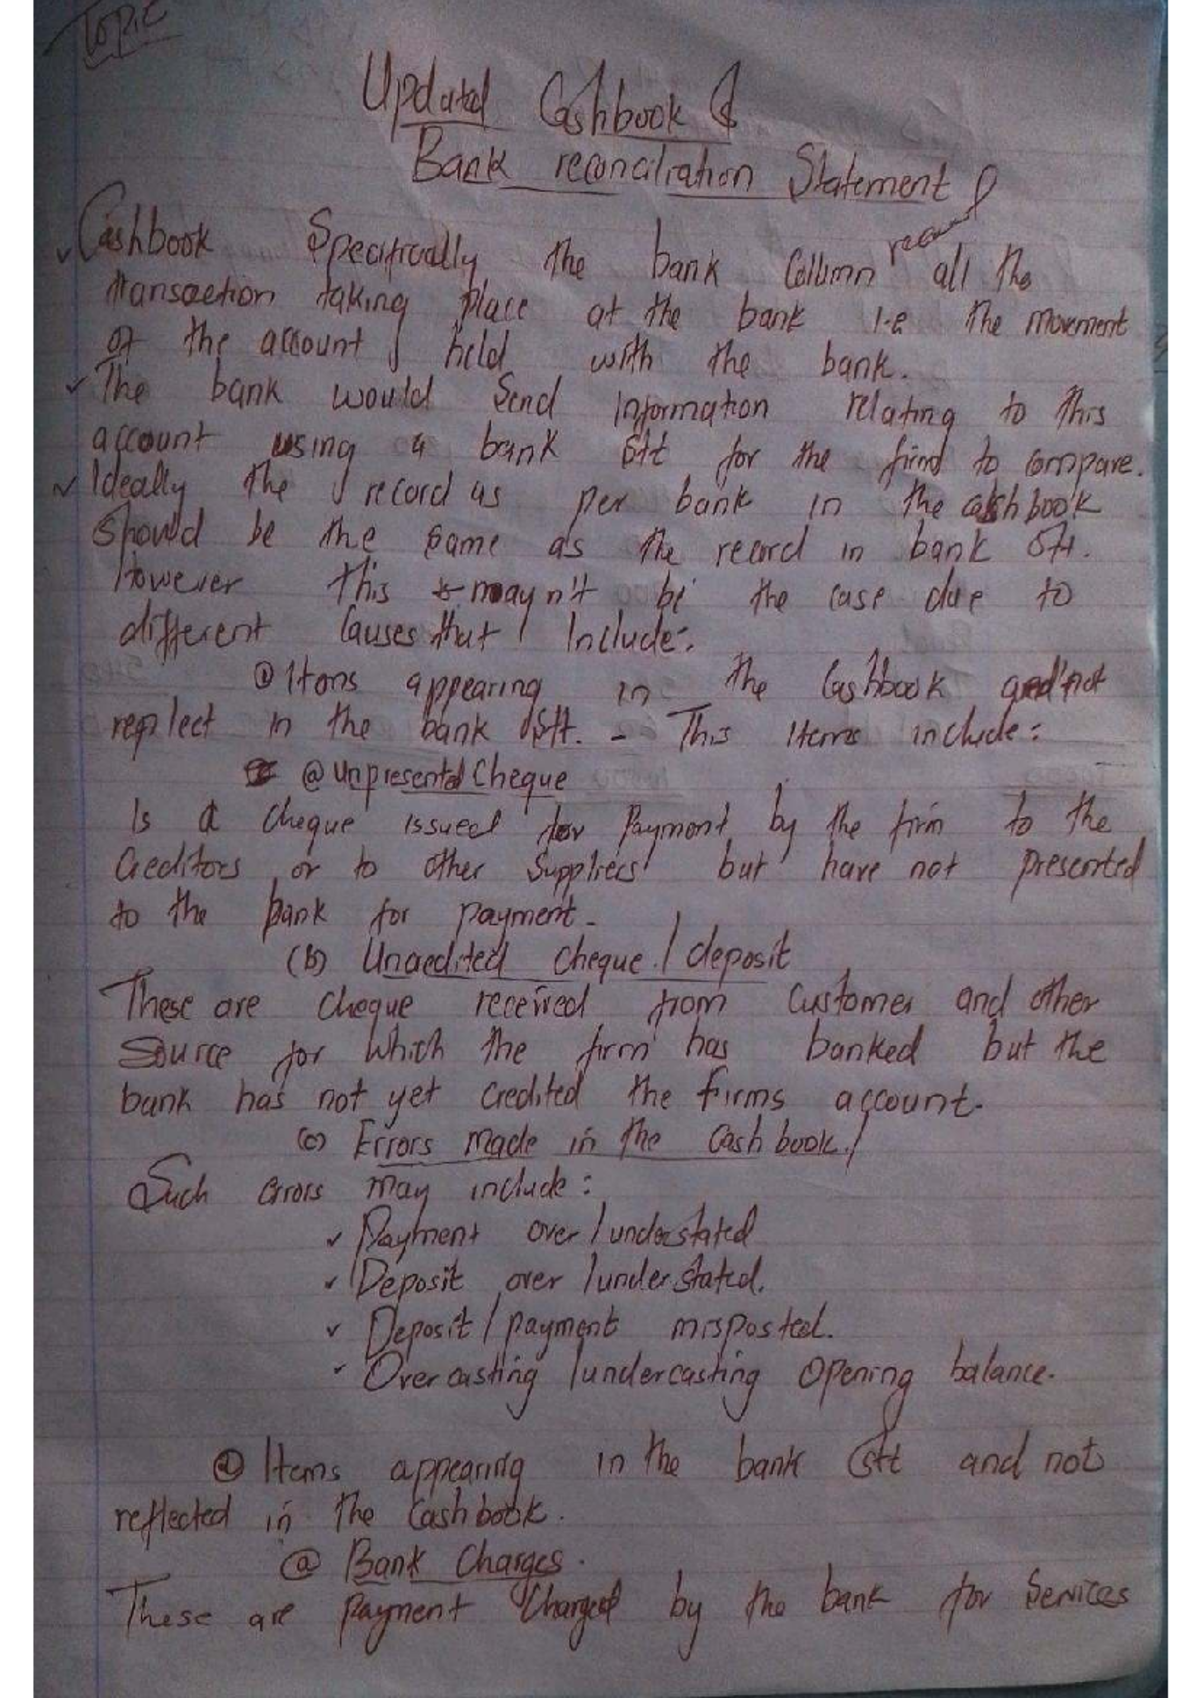 Topic
Updated Cashbook &
Bank reconciliation Statement
Cashbook Specifically the bank Column record all the
transaction taking place at the bank i.e the movement
of the account held with the bank.
The bank would Send Information relating to this
account using a bank Stt for the firm to compare.
Ideally the record as per bank in the cashbook
Should be the same as the record in bank Stt.
However this mayn't be the case due to
different Causes that Include:
① Items appearing in the Cashbook and not
reflect in the bank Stt. - This Items include:
@ Unpresented Cheque
Is a cheque issued for Payment by the firm to the
Creditors or to other Suppliers but have not presented
to the bank for payment.
(b) Uncredited cheque / deposit
These are cheque received from Customer and other
Source for which the firm has banked but the
bank has not yet credited the firms account.
(c) Errors made in the Cash book.
Such errors may include:
✓ Payment over/understated
✓ Deposit over/understated.
✓ Deposit/payment misposted.
✓ Overcasting/undercasting Opening balance.
② Items appearing in the bank Stt and not
reflected in the Cashbook.
@ Bank Charges.
These are payment Charged by the bank for Services